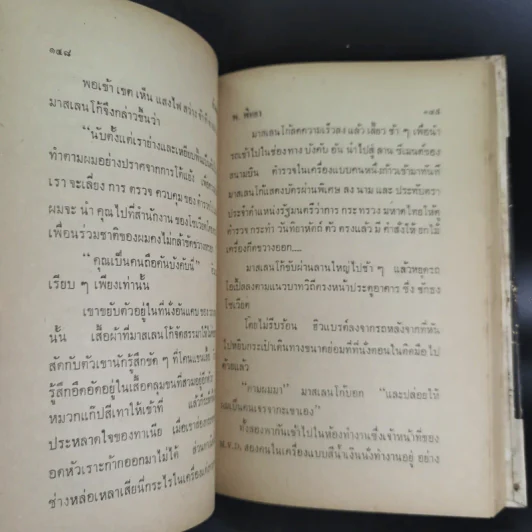 ๑๔๘
พอเข้า เขต เห็น แสงไฟ สว่าง
มาสเลนโก้จึงกล่าวขึ้นว่า
“นับตั้งแต่เราย่างและเหยียบ
ทำตามผมอย่างปราศจากการโต้แย้ง
เรา จะเลี่ยง การ ตรวจ ควบคุม ของ
ผมจะ นำ คุณ ไปที่ สำนักงาน ของ
เพื่อนร่วมชาติของผมคงไม่กล้าขัดขวาง
“คุณเป็นคนถือคันบังคับนี่”
เรียบ ๆ เพียงเท่านั้น
เขาขยับตัวอยู่ในที่นั่งอันแคบ ของ
นั้น เสื้อผ้าที่มาสเลนโก้จัดสรรมาให้
สัดกับตัวเขานักรู้สึกขัด ๆ ที่โคนแขน
รู้สึกอึดอัดอยู่ในเสื้อคลุมขนที่สวมอยู่
หมวกแก๊ปสีเทาให้เข้าที่ แล้ว
ประหลาดใจของทาเนีย เมื่อเขา
อดหัวเราะก้ากออกมาไม่ได้
ช่างหล่อเหลาเสียนี่กระไรในเครื่อง
พ. พิทยา
๑๔๙
มาสเลนโก้ลดความเร็วลง แล้ว เลี้ยว ช้า ๆ เพื่อนำ
รถเข้าไปในช่องทาง บังคับ อัน นำไปสู่ ลาน ซีเมนต์ของ
สนามบิน ตำรวจในเครื่องแบบคนหนึ่งก้าวเข้ามาทันที
มาสเลนโก้แสดงบัตรผ่านพิเศษ ลง นาม และ ประทับตรา
ประจำตำแหน่งรัฐมนตรีว่าการ กระทรวง มหาดไทยให้ดู
ตำรวจ กระทำ วันทยาหัตถ์ ตัว ตรงแล้ว มี คำสั่งให้ ยกไม้
เครื่องกีดขวางออก....
มาสเลนโก้ขับผ่านลานใหญ่ไปช้า ๆ แล้วหยุดรถ
โซเวียต
โดยไม่รีบร้อน ฮิวเบรต์ลงจากรถหลังจากที่หัน
ไปหยิบกระเป๋าเดินทางขนาดย่อมที่ที่นั่งตอนในติดมือไป
ด้วยแล้ว
“ตามผมมา” มาสเลนโก้บอก “และปล่อยให้
ผมเป็นคนเจรจากะเขาเอง”
ทั้งสองพากันเข้าไปในห้องทำงานซึ่งเจ้าหน้าที่ของ
M.V.D. สองคนในเครื่องแบบสีน้ำเงินนั่งทำงานอยู่ อย่าง